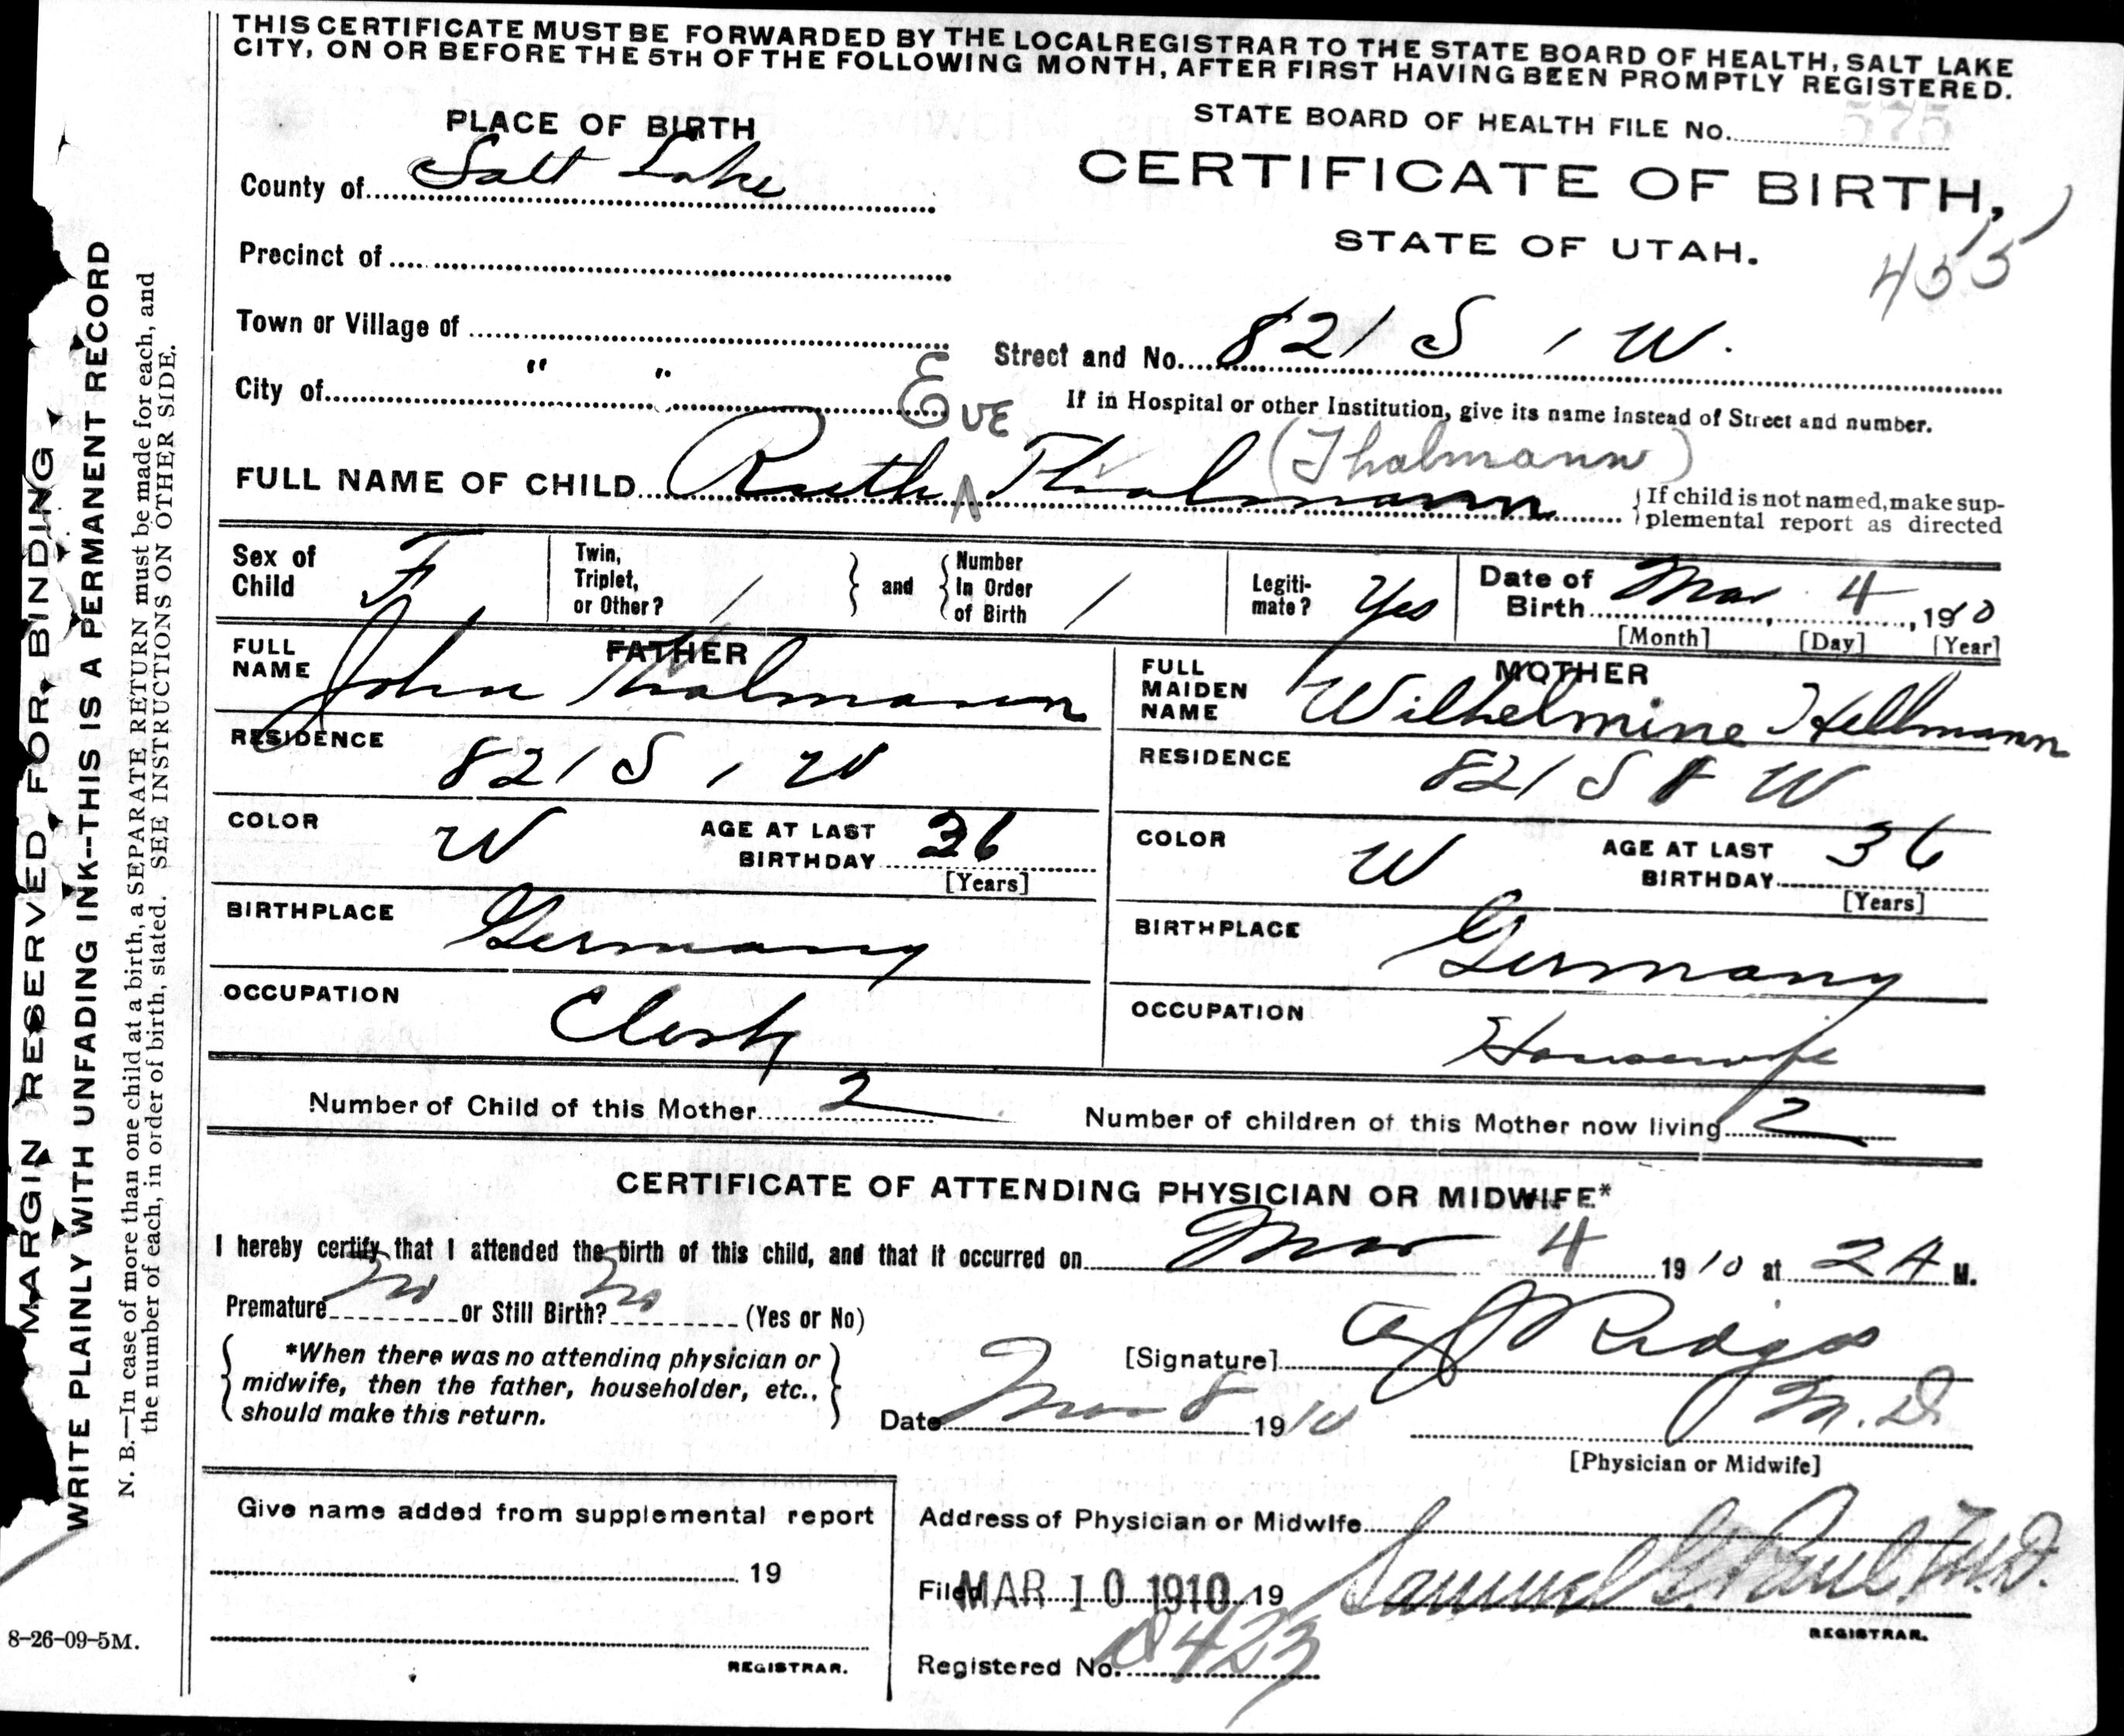 THIS CERTIFICATE MUST BE FORWARDED BY THE LOCAL REGISTRAR TO THE STATE BOARD OF HEALTH, SALT LAKE
CITY, ON OR BEFORE THE 5TH OF THE FOLLOWING MONTH, AFTER FIRST HAVING BEEN PROMPTLY REGISTERED.
STATE BOARD OF HEALTH FILE No. 575
PLACE OF BIRTH
CERTIFICATE OF BIRTH,
County of Salt Lake
STATE OF UTAH.
455
Precinct of
Town or Village of
Street and No. 821 S 1 W.
City of " "
If in Hospital or other Institution, give its name instead of Street and number.
EVE
(Thalmann)
FULL NAME OF CHILD Ruth ^ Thalmann
{If child is not named, make sup-
plemental report as directed
Sex of Child F
Twin, Triplet, or Other? /
} and {
Number In Order of Birth /
Legiti-mate? Yes
Date of Birth Mar. 4, 1910
[Month] [Day] [Year]
FATHER
FULL NAME John Thalmann
MOTHER
FULL MAIDEN NAME Wilhelmine Hellmann
RESIDENCE 821 S 1 W
RESIDENCE 821 S 1 W
COLOR W
AGE AT LAST BIRTHDAY 36
[Years]
COLOR W
AGE AT LAST BIRTHDAY 36
[Years]
BIRTHPLACE Germany
BIRTHPLACE Germany
OCCUPATION Clerk
OCCUPATION Housewife
Number of Child of this Mother 2
Number of children of this Mother now living 2
CERTIFICATE OF ATTENDING PHYSICIAN OR MIDWIFE*
I hereby certify that I attended the birth of this child, and that it occurred on Mar 4 1910 at 2 A M.
Premature No or Still Birth? No (Yes or No)
{ *When there was no attending physician or
midwife, then the father, householder, etc.,
should make this return. }
[Signature] Ridges
M. D.
Date Mar 8 1910
[Physician or Midwife]
Give name added from supplemental report
19
REGISTRAR.
Address of Physician or Midwife
Filed MAR 10 1910 19 Samuel G. Paul, M.D.
REGISTRAR.
Registered No. 423
MARGIN RESERVED FOR BINDING
WRITE PLAINLY WITH UNFADING INK--THIS IS A PERMANENT RECORD
N. B.—In case of more than one child at a birth, a SEPARATE RETURN must be made for each, and
the number of each, in order of birth, stated. SEE INSTRUCTIONS ON OTHER SIDE.
8-26-09-5M.